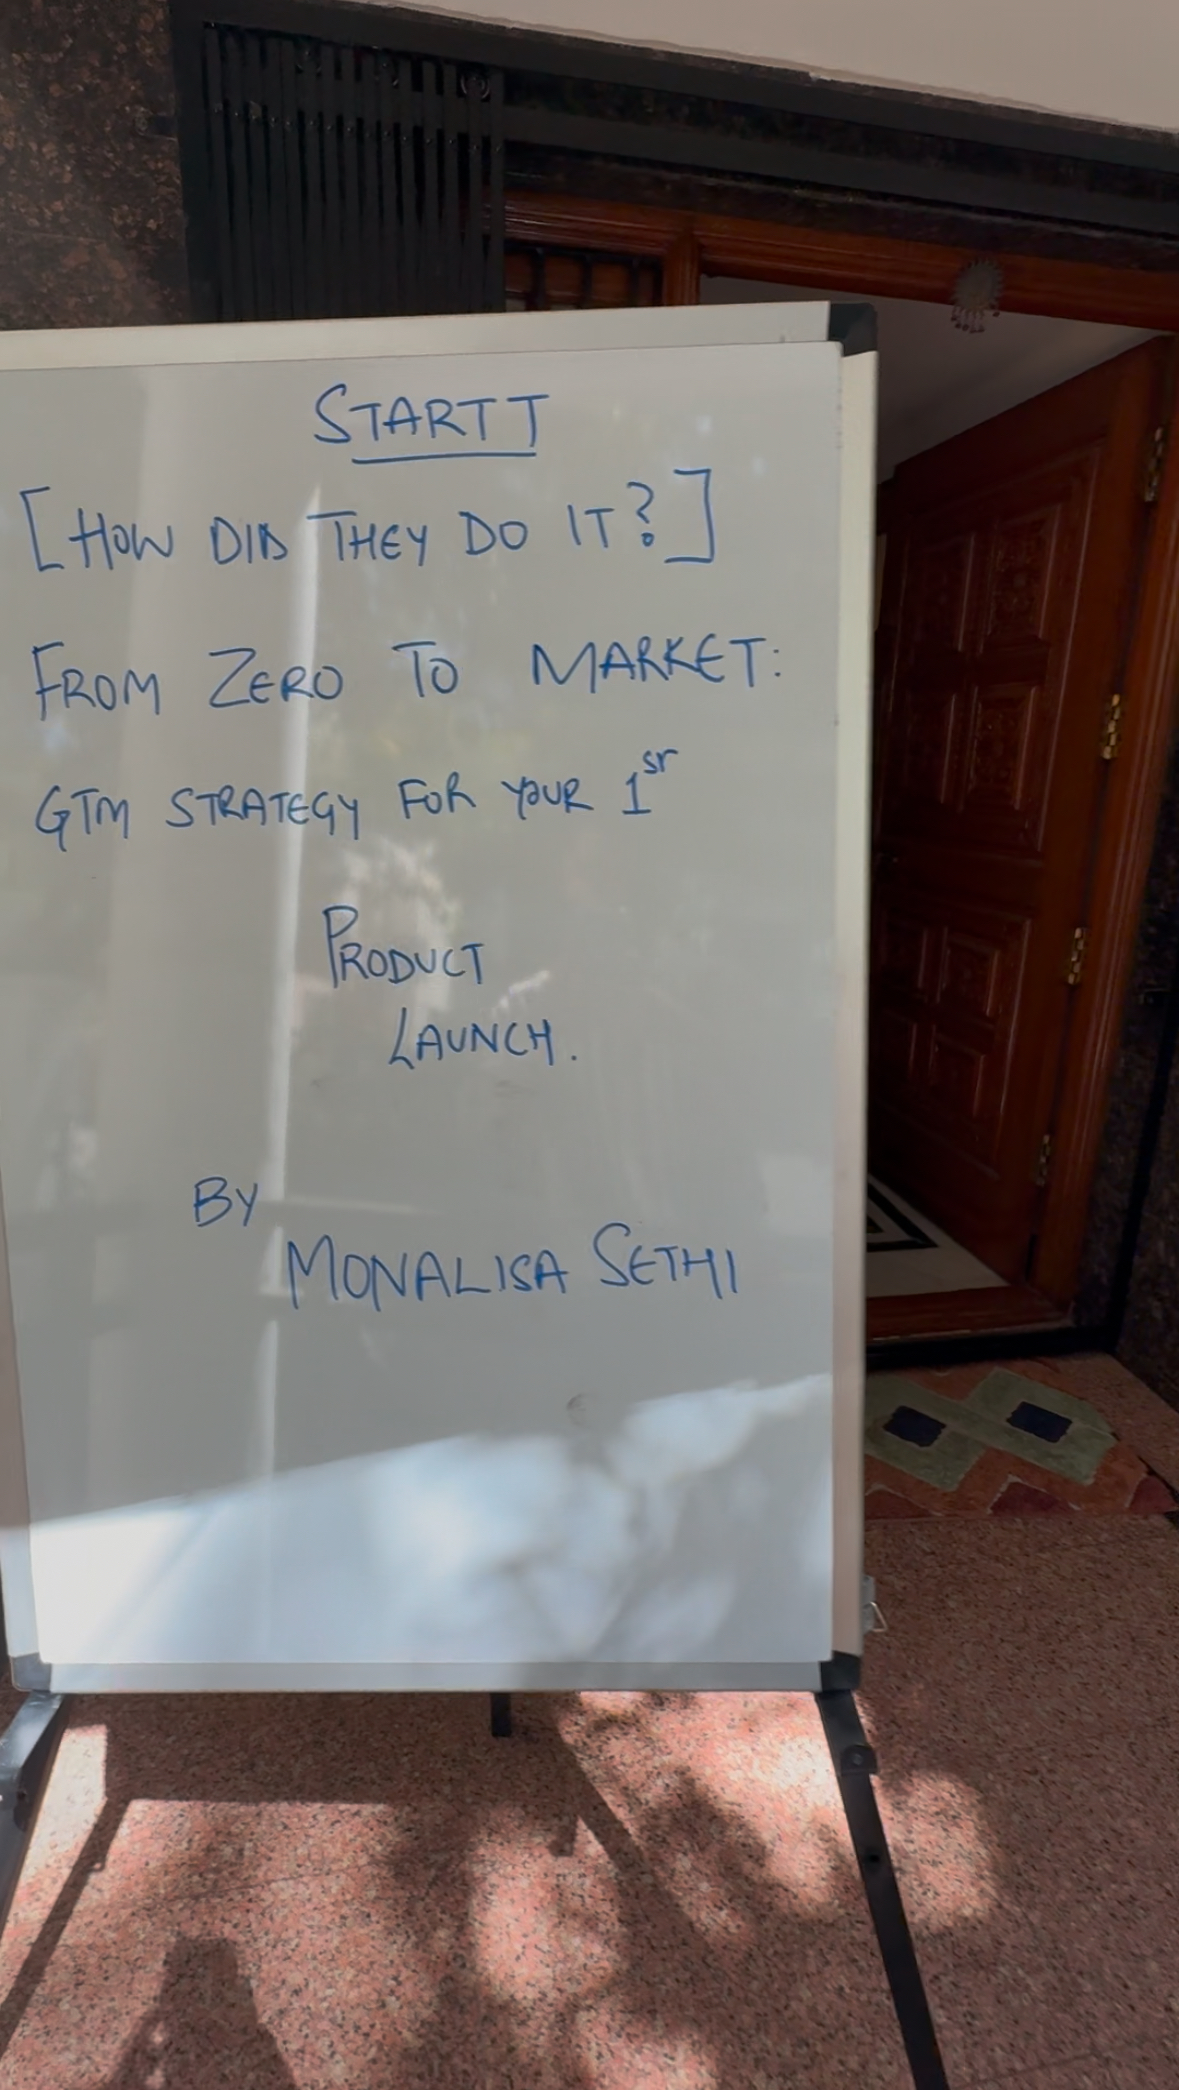 STARTT
[HOW DID THEY DO IT?]
FROM ZERO TO MARKET:
GTM STRATEGY FOR YOUR 1ST
PRODUCT
LAUNCH.
BY
MONALISA SETHI